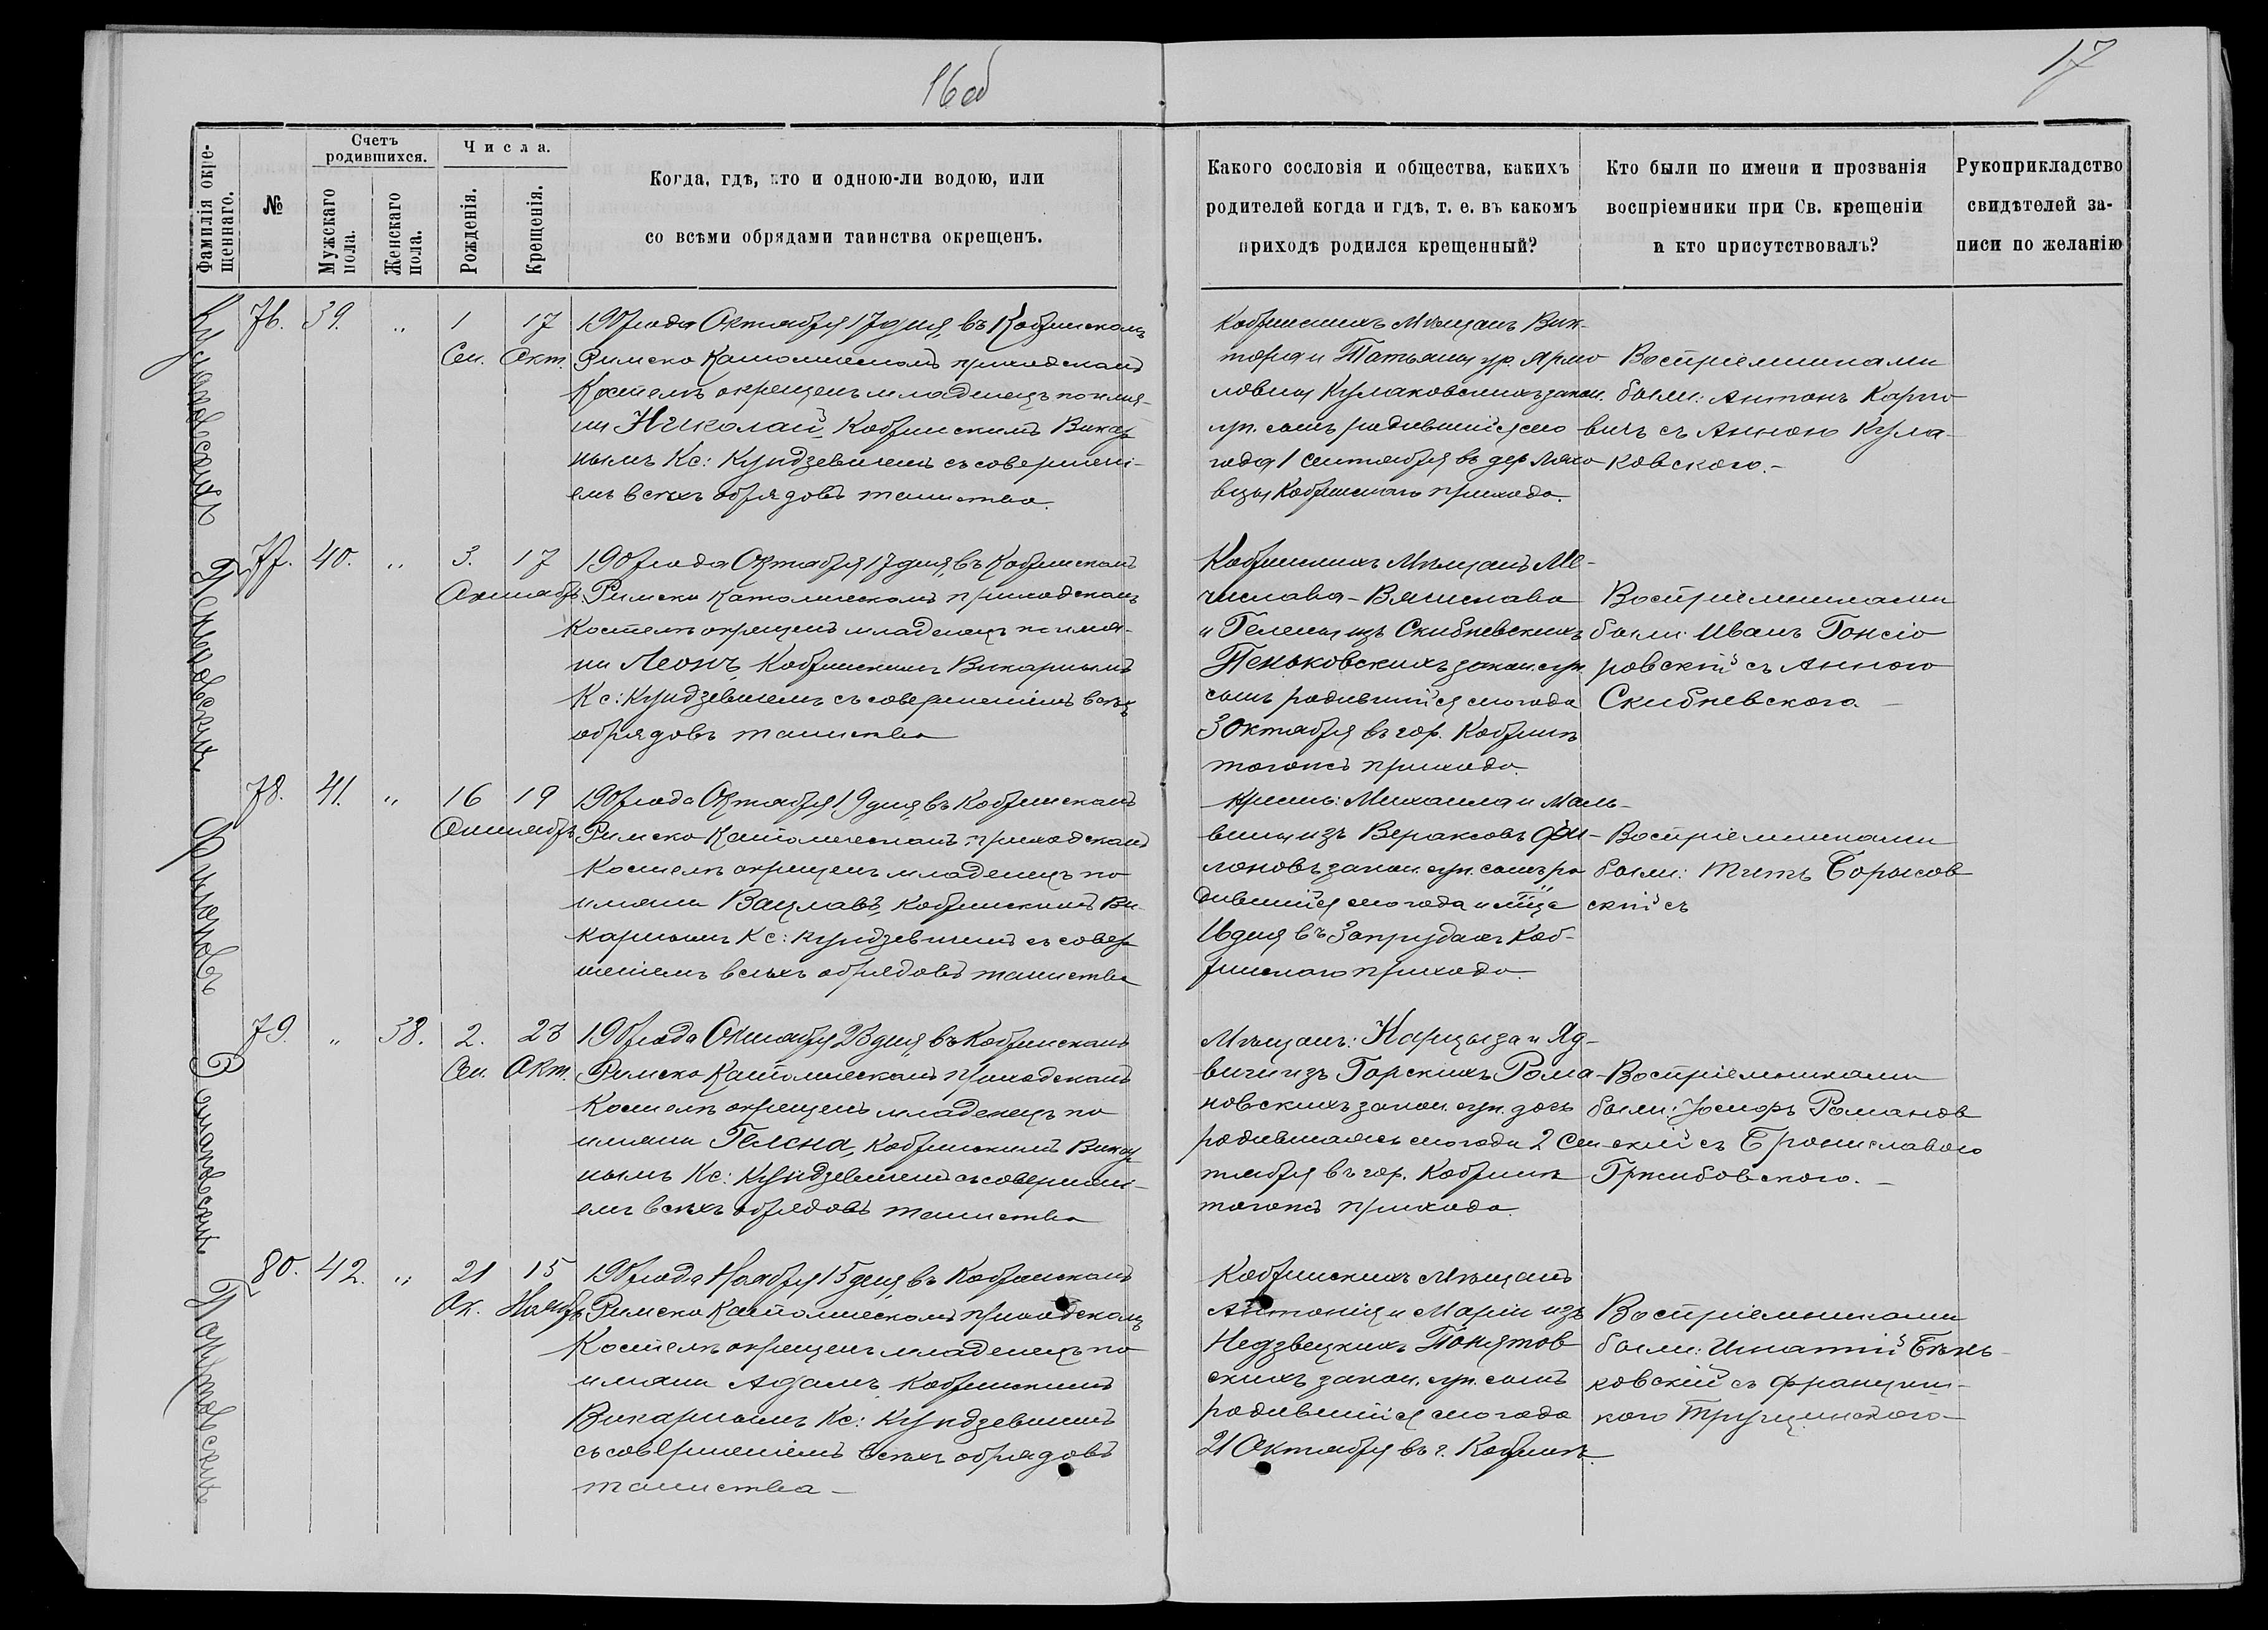 16 об
17
Фамилія окре-
щеннаго.
№
Счетъ
родившихся.
Мужскаго
пола.
Женскаго
пола.
Числа.
Рожденія.
Крещенія.
Когда, гдѣ, кто и одною-ли водою, или
со всѣми обрядами таинства окрещенъ.
Какого сословія и общества, какихъ
родителей когда и гдѣ, т. е. въ какомъ
приходѣ родился крещенный?
Кто были по имени и прозванія
воспріемники при Св. крещеніи
и кто присутствовалъ?
Рукоприкладство
свидѣтелей за-
писи по желанію
Кулаковскихъ
76. 39. " 1 17
Сен. Окт.
1907 года Октября 17 дня, въ Кобринскомъ
Римско Католическомъ приходскомъ
Костелѣ окрещенъ младенецъ по име-
ни Николай, Кобринскимъ Викар
нымъ Кс: Кундзевичемъ съ совершені-
емъ всѣхъ обрядовъ таинства.
Кобринскихъ Мѣщанъ Вик-
тора и Татьяны ур.
Кулаковскихъ закон.
суп. сынъ родившійся сего
года 1 Сентября въ дер. Ляхо
вцы Кобринскаго прихода.
Воспріемниками
были: Антонъ Карпо
вичъ съ Анною Кула-
ковского.-
Пеньковскихъ
77. 40. " 3. 17
Октябр.
1907 года Октября 17 дня, въ Кобринскомъ
Римско Католическомъ приходскомъ
Костелѣ окрещенъ младенецъ по име-
ни Леонъ, Кобринскимъ Викарнымъ
Кс: Кундзевичемъ съ совершеніемъ всѣхъ
обрядовъ таинства
Кобринскихъ Мѣщанъ Ме-
числава-Вячислава
и Гелены изъ Скибневскихъ
Пеньковскихъ закон. суп.
сынъ родившійся сего года
3 Октября въ гор. Кобринѣ
тогожъ прихода.
Воспріемниками
были: Иванъ Гонсіо
ровскій съ Анною
Скибневского. -
Филоновъ
78. 41. " 16 19
Октябр.
1907 года Октября 19 дня, въ Кобринскомъ
Римско Католическомъ приходскомъ
Костелѣ окрещенъ младенецъ по
имени Вацлавъ, Кобринскимъ Ви-
карнымъ Кс: Кундзевичемъ съ совер
шеніемъ всѣхъ обрядовъ таинства
Крест: Михаила и Маль-
вины изъ Вераксовъ Фи-
лоновъ закон. суп. сынъ ро
дившійся сего года и м-ца
16 дня въ Запрудахъ Коб-
ринскаго прихода.
Воспріемниками
были: Титъ Борисов
скій съ
Романовскихъ
79. " 38. 2. 23
Сен. Окт.
1907 года Октября 23 дня, въ Кобринскомъ
Римско Католическомъ приходскомъ
Костелѣ окрещенъ младенецъ по
имени Гелена, Кобринскимъ Викар
нымъ Кс: Кундзевичемъ съ совершені-
емъ всѣхъ обрядовъ таинства
Мѣщанъ: Нарцыза и Яд-
виги изъ Горскихъ Рома-
новскихъ закон. суп. дочь
родившаяся сего года 2 Сен
тября въ гор. Кобринѣ
тогожъ прихода.
Воспріемниками
были: Іосифъ Романов
скій съ Брониславою
Гржибовского. -
Понятовскихъ
80. 42. " 21 15
Ок. Ноябр.
1907 года Ноября 15 дня, въ Кобринскомъ
Римско Католическомъ приходскомъ
Костелѣ окрещенъ младенецъ по
имени Адамъ, Кобринскимъ
Викарнымъ Кс: Кундзевичемъ
съ совершеніемъ всѣхъ обрядовъ
таинства -
Кобринскихъ Мѣщанъ
Антонія и Маріи изъ
Недзвецкихъ Понятов
скихъ закон. суп. сынъ
родившійся сего года
21 Октября въ г. Кобринѣ.
Воспріемниками
были: Игнатій Бень-
ковскій съ Францишк
кого Трущинского-